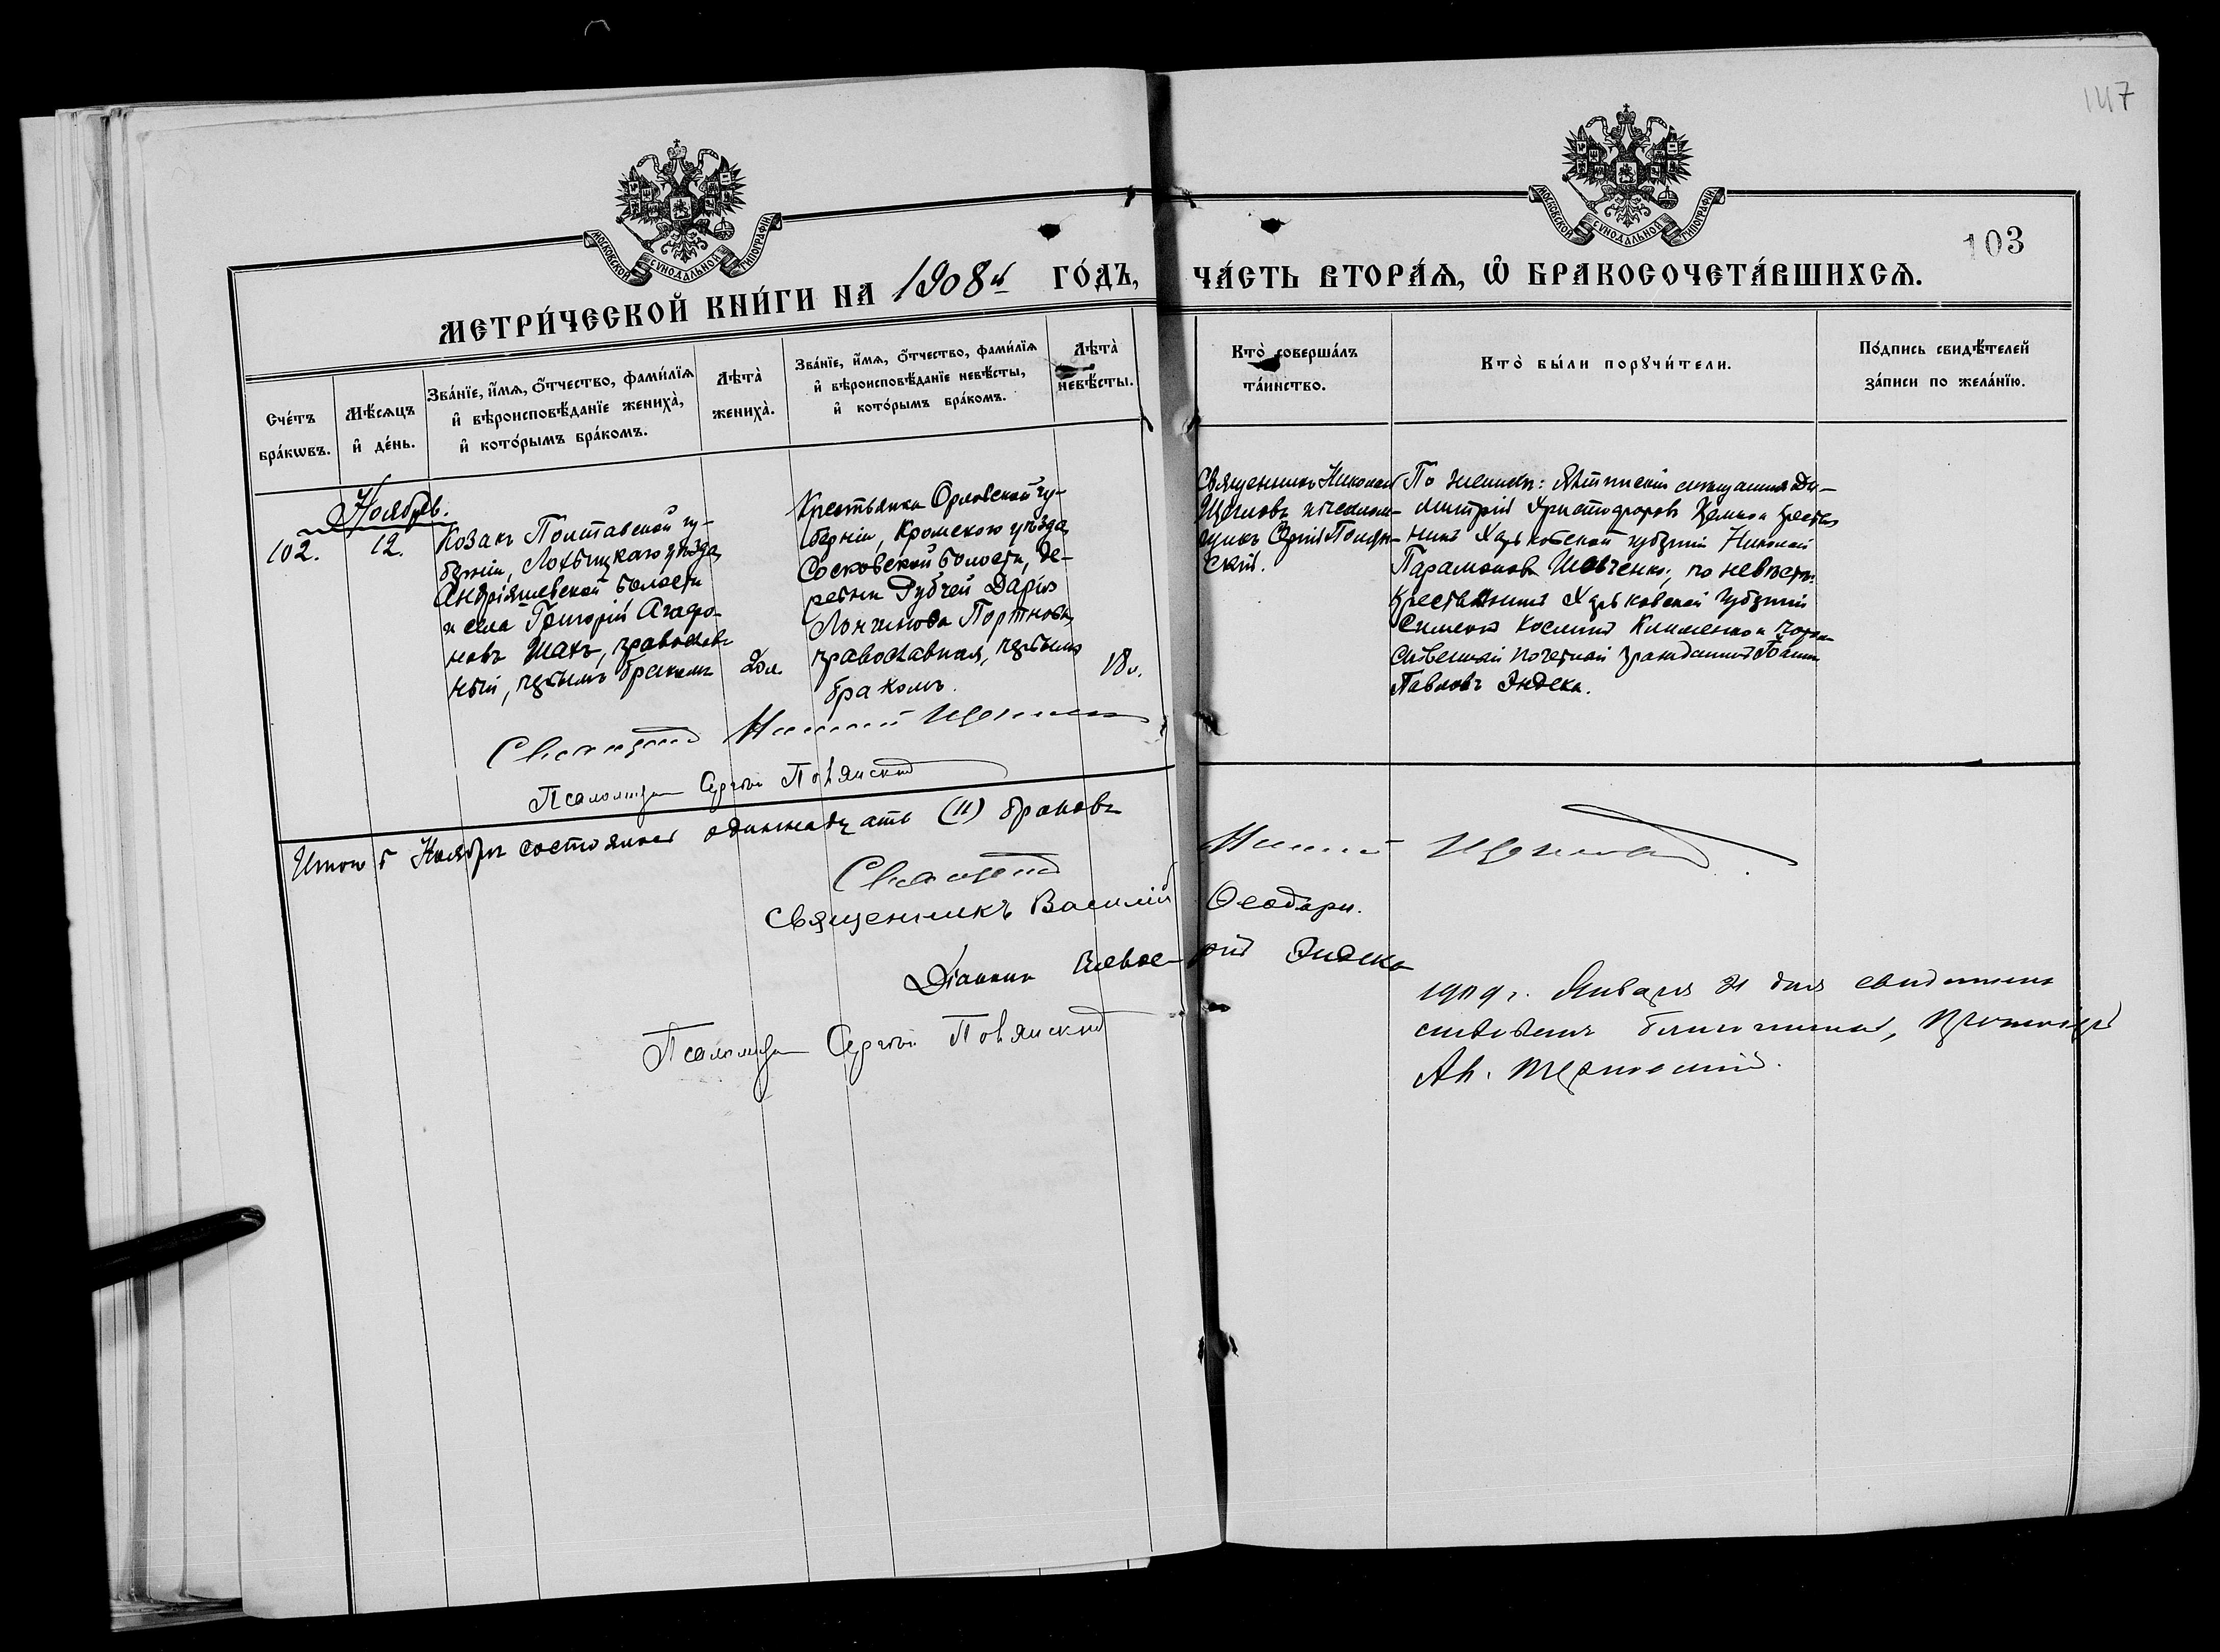 147
МОСКОВСКОЙ СѴНОДАЛЬНОЙ ТИПОГРАФІИ
МОСКОВСКОЙ СѴНОДАЛЬНОЙ ТИПОГРАФІИ
103
МЕТРИ́ЧЕСКОЙ КНИ́ГИ НА 1908й ГО́ДЪ, ЧА́СТЬ ВТОРА́Ѧ, Ѽ БРАКОСОЧЕТА́ВШИХСѦ.
Сче́тъ
бра́кѡвъ.
Мѣ́сѧцъ
и҆ де́нь.
Зва́нїе, и҆́мѧ, ѻ҆́тчество, фами́лїѧ
и҆ вѣроисповѣ́данїе жениха̀,
и҆ кото́рымъ бра́комъ.
Лѣта̀
жениха̀.
Зва́нїе, и҆́мѧ, ѻ҆́тчество, фами́лїѧ
и҆ вѣроисповѣ́данїе невѣ́сты,
и҆ кото́рымъ бра́комъ.
Лѣта̀
невѣ́сты.
Кто̀ соверша́лъ
та́инство.
Кто̀ бы́ли порꙋчи́тели.
По́дпись свидѣ́телей
за́писи по жела́нїю.
Ноябрь.
102.
12.
Козакъ Полтавской гу-
берніи, Лохвицкаго уѣзда,
Андріяшевской волости
и села Григорій Агафо-
новъ Шахъ, православ-
ный, первымъ бракомъ
Крестьянка Орловской гу-
берніи, Кромскаго уѣзда,
Сосковской волости, де-
ревни Рубчей Дарія
Лонгинова Портнова,
православная, первымъ
бракомъ.
18.
Священникъ Николай
Щегловъ и псалом-
щикъ Сергій
скій.
По женихѣ: мѣщанинъ Ди-
митрій Христофоровъ и крестья-
нинъ Харьковской губерніи Николай
Парамоновъ Шевченко; по невѣстѣ:
крестьянинъ Харьковской губерніи
Симеонъ Косминъ Клименко и потом-
ственный почетный гражданинъ Іоаннъ
Павловъ Эндека.
Священникъ Николай Щегловъ
Псаломщикъ Сергій
Итого въ Ноябрѣ состоялось одиннадцать (11) браковъ
Священникъ Николай Щегловъ
Священникъ Василій
Діаконъ Эндека
Псаломщикъ Сергій
1909 г. Января 21 дня
благочинный, Протоіерей